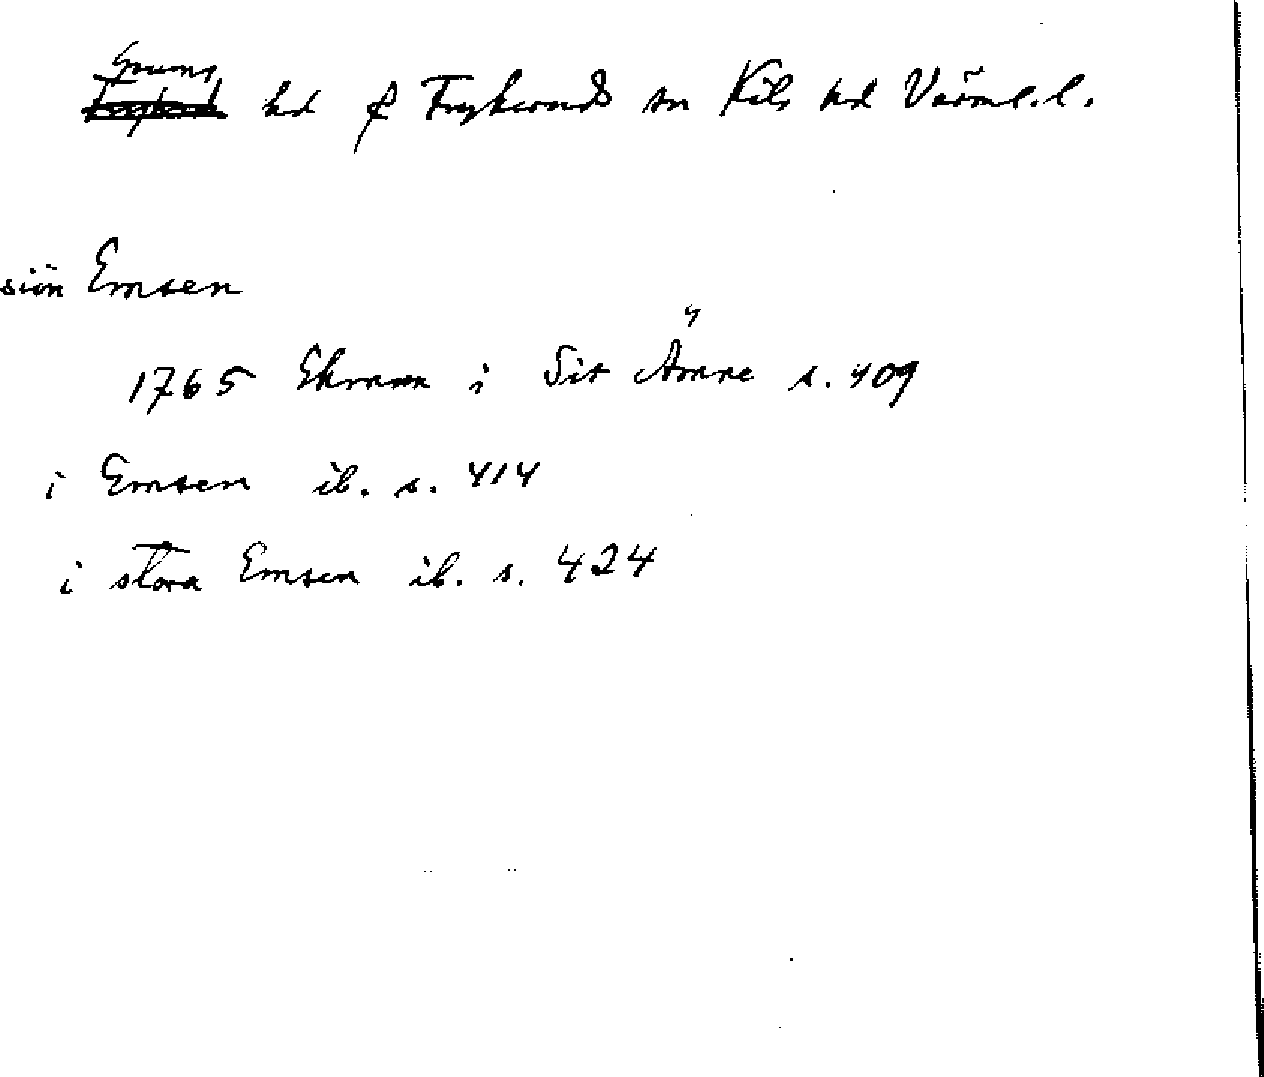 Grums
hd f Frykerud sn Kils hd Värml. l.
siön Emsen
1765 Ekman i Sit Ämne s. 409
i Emsen ib. s. 414
i stora Emsen ib. s. 424